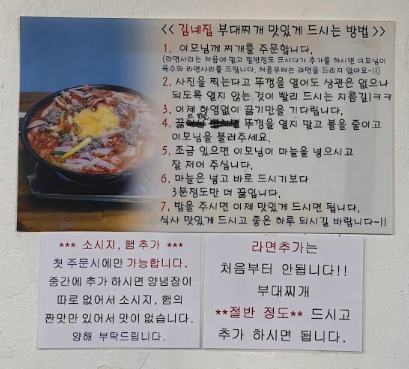 << 김네집 부대찌개 맛있게 드시는 방법 >>
1. 이모님께 찌개를 주문합니다.
(라면사리는 처음에 말고 절반정도 드시다가 추가를 하시면 이모님이
육수와 라면사리를 드립니다. 처음부터는 라면을 드리지 않아요~!!)
2. 사진을 찍는다고 뚜껑을 열어도 상관은 없으나
되도록 열지 않는 것이 빨리 드시는 지름길!ㅋㅋ
3. 이제 하염없이 끓기만을 기다립니다.
4. 뚜껑을 열지 말고 불을 줄이고
이모님을 불러주세요.
5. 조금 있으면 이모님이 마늘을 넣으시고
잘 저어 주십니다.
6. 마늘은 넣고 바로 드시기보다
3분정도만 더 끓입니다.
7. 밥을 주시면 이제 맛있게 드시면 됩니다.
식사 맛있게 드시고 좋은 하루 되시길 바랍니다~!!
*** 소시지, 햄 추가 ***
첫 주문시에만 가능합니다.
중간에 추가 하시면 양념장이
따로 없어서 소시지, 햄의
짠맛만 있어서 맛이 없습니다.
양해 부탁드립니다.
라면추가는
처음부터 안됩니다!!
부대찌개
**절반 정도** 드시고
추가 하시면 됩니다.